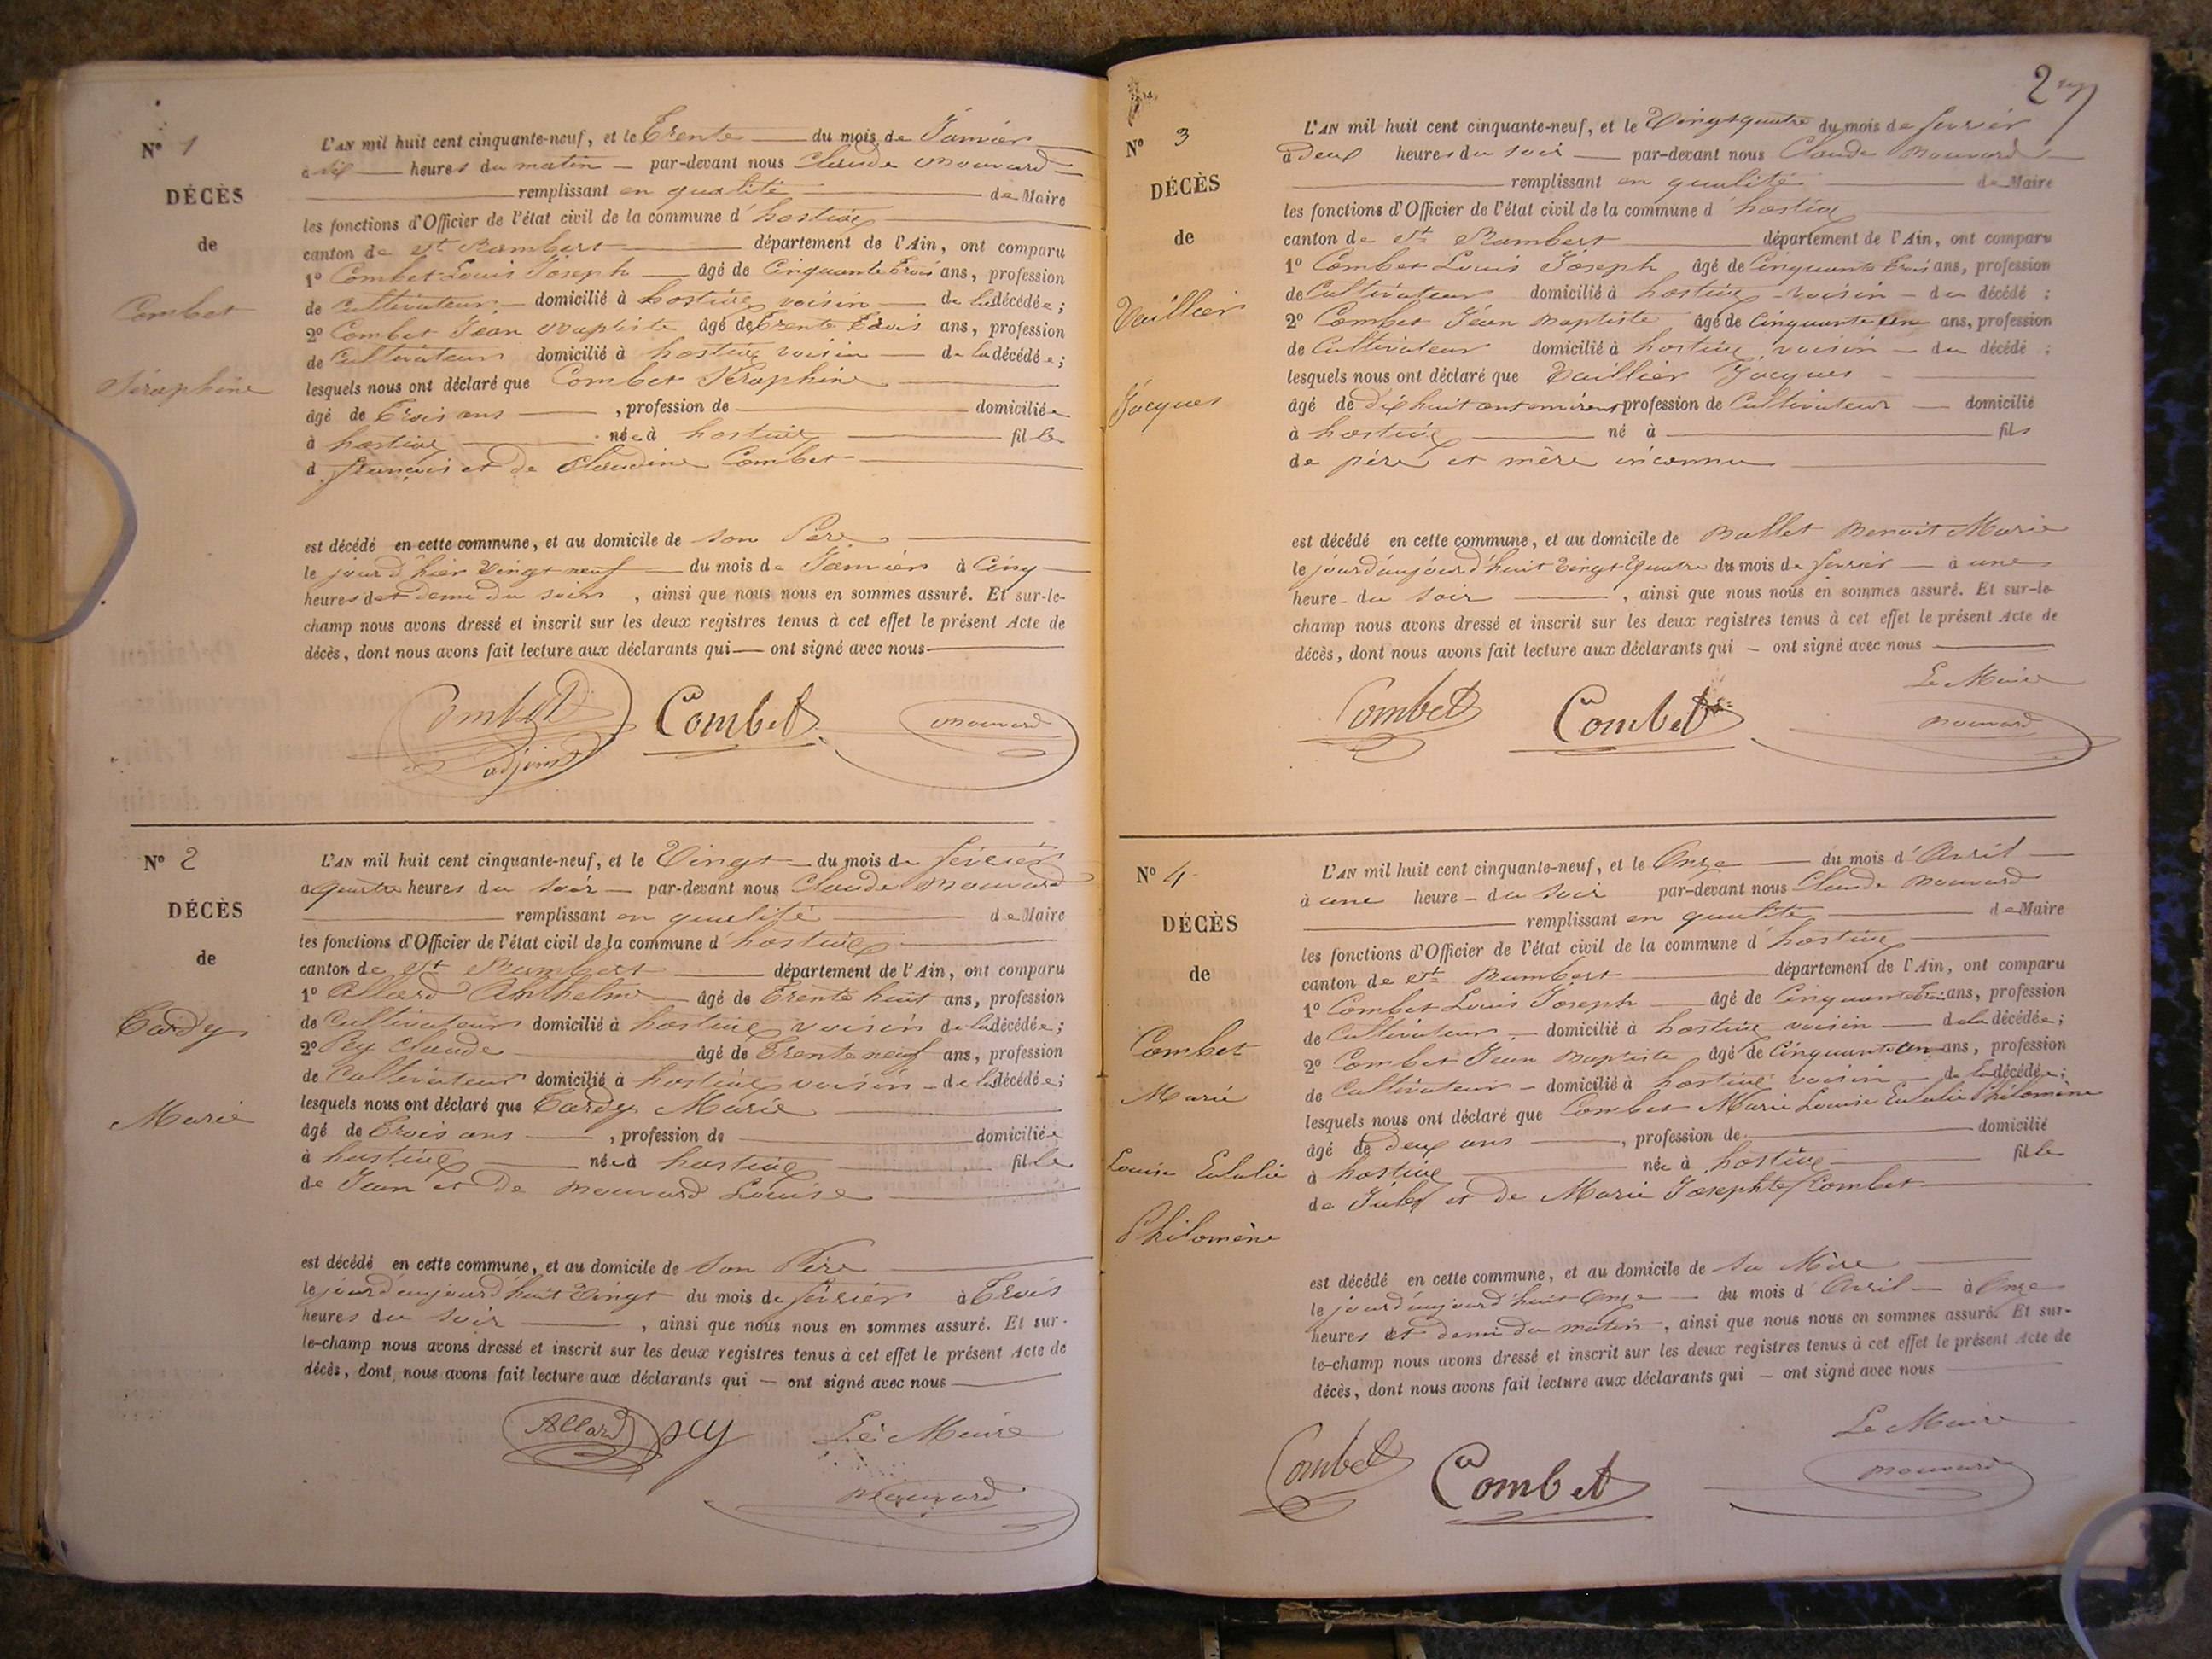 N° 1
DÉCÈS
de
Combet
Séraphine
L'AN mil huit cent cinquante-neuf, et le Trente du mois de Janvier
à dix heures du matin par-devant nous Claude Mouvard
remplissant en qualité de Maire
les fonctions d'Officier de l'état civil de la commune d'hostiaz
canton de St Rambert département de l'Ain, ont comparu
1° Combet Louis Joseph âgé de Cinquante trois ans, profession
de Cultivateur domicilié à hostiaz voisin de la décédée;
2° Combet Jean Baptiste âgé de trente trois ans, profession
de Cultivateur domicilié à hostiaz voisin de la décédée;
lesquels nous ont déclaré que Combet Séraphine
âgé de Trois ans , profession de domiciliée
à hostiaz née à hostiaz fille
d françois et de Claudine Combet
est décédé en cette commune, et au domicile de son Père
le jour d'hier vingt neuf du mois de Janvier à Cinq
heures et demi du soir , ainsi que nous nous en sommes assuré. Et sur-le-
champ nous avons dressé et inscrit sur les deux registres tenus à cet effet le présent Acte de
décès, dont nous avons fait lecture aux déclarants qui ont signé avec nous
Combet Combet Mouvard
adjoint
N° 2
DÉCÈS
de
Tardy
Marie
L'AN mil huit cent cinquante-neuf, et le Vingt du mois de février
à quatre heures du soir par-devant nous Claude Mouvard
remplissant en qualité de Maire
les fonctions d'Officier de l'état civil de la commune d'hostiaz
canton de St Rambert département de l'Ain, ont comparu
1° Allard Anthelme âgé de Trente huit ans, profession
de Cultivateur domicilié à hostiaz voisin de la décédée;
2° Pey Claude âgé de Trente neuf ans, profession
de Cultivateur domicilié à hostiaz voisin de la décédée;
lesquels nous ont déclaré que Tardy Marie
âgé de Trois ans , profession de domiciliée
à hostiaz née à hostiaz fille
de Jean et de Mouvard Louise
est décédé en cette commune, et au domicile de son Père
le jourd'aujourd'huit Vingt du mois de février à Trois
heures du soir , ainsi que nous nous en sommes assuré. Et sur-
le-champ nous avons dressé et inscrit sur les deux registres tenus à cet effet le présent Acte de
décès, dont nous avons fait lecture aux déclarants qui ont signé avec nous
Allard pey Le Maire
Mouvard
N° 3
DÉCÈS
de
Vaillier
Jacques
L'AN mil huit cent cinquante-neuf, et le Vingt quatre du mois de fevrier
à deux heures du soir par-devant nous Claude Mouvard
remplissant en qualité de Maire
les fonctions d'Officier de l'état civil de la commune d'hostiaz
canton de St Rambert département de l'Ain, ont comparu
1° Combet Louis Joseph âgé de Cinquante trois ans, profession
de Cultivateur domicilié à hostiaz voisin du décédé ;
2° Combet Jean Baptiste âgé de Cinquante un ans, profession
de Cultivateur domicilié à hostiaz voisin du décédé ;
lesquels nous ont déclaré que Vaillier Jacques
âgé de dix huit ans profession de Cultivateur domicilié
à hostiaz né à fils
de père et mère inconnu
est décédé en cette commune, et au domicile de Ballet Benoit Marie
le jourd'aujourd'huit Vingt Quatre du mois de fevrier à une
heure du soir , ainsi que nous nous en sommes assuré. Et sur-le-
champ nous avons dressé et inscrit sur les deux registres tenus à cet effet le présent Acte de
décès, dont nous avons fait lecture aux déclarants qui ont signé avec nous
Le Maire
Combet Combet Mouvard
N° 4
DÉCÈS
de
Combet
Marie
Louise Eulalie
Philomène
L'AN mil huit cent cinquante-neuf, et le Onze du mois d'Avril
à une heure du soir par-devant nous Claude Mouvard
remplissant en qualité de Maire
les fonctions d'Officier de l'état civil de la commune d'hostiaz
canton de St Rambert département de l'Ain, ont comparu
1° Combet Louis Joseph âgé de Cinquante trois ans, profession
de Cultivateur domicilié à hostiaz voisin de la décédée;
2° Combet Jean Baptiste âgé de Cinquante un ans, profession
de Cultivateur domicilié à hostiaz voisin de la décédée;
lesquels nous ont déclaré que Combet Marie Louise Eulalie Philomène
âgé de deux ans , profession de domicilié
à hostiaz née à hostiaz fille
de Jules et de Marie Josephte Combet
est décédé en cette commune, et au domicile de sa Mère
le jourd'aujourd'huit Onze du mois d'Avril à Onze
heures et demi du matin, ainsi que nous nous en sommes assuré. Et sur-
le-champ nous avons dressé et inscrit sur les deux registres tenus à cet effet le présent Acte de
décès, dont nous avons fait lecture aux déclarants qui ont signé avec nous
Le Maire
Combet Combet Mouvard